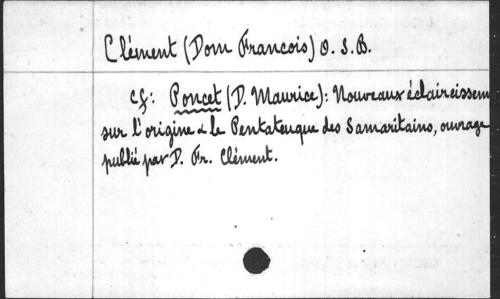 Clément (Dom Francois) O. S. B.
cf: Poncet (D. Maurice): Nouveaux éclaircissem
sur l'origine & le Pentateuque des Samaritains, ouvrage
publié par D. Fr. Clément.